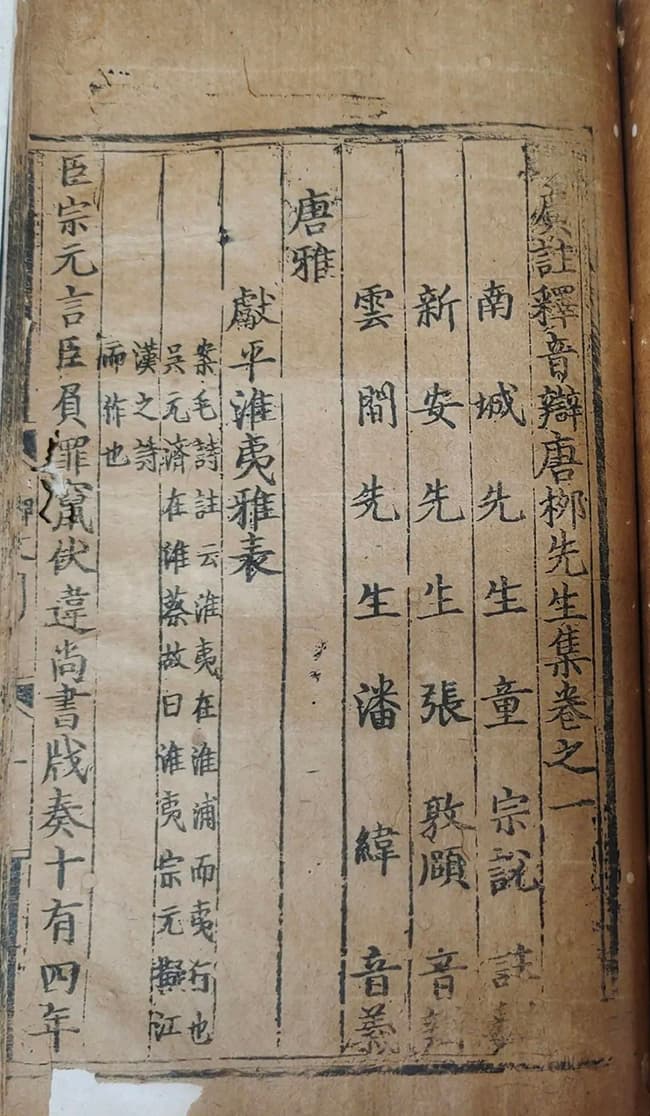 廣註釋音辯唐柳先生集卷之一
南城先生童宗說註
新安先生張敦頤音
雲間先生潘緯音義
唐雅
獻平淮夷雅表
案毛詩註云淮夷在淮浦而夷行也
吳元濟在淮蔡故曰淮夷宗元擬江
漢之詩
而作也
臣宗元言臣負罪竄伏違尚書牋奏十有四年